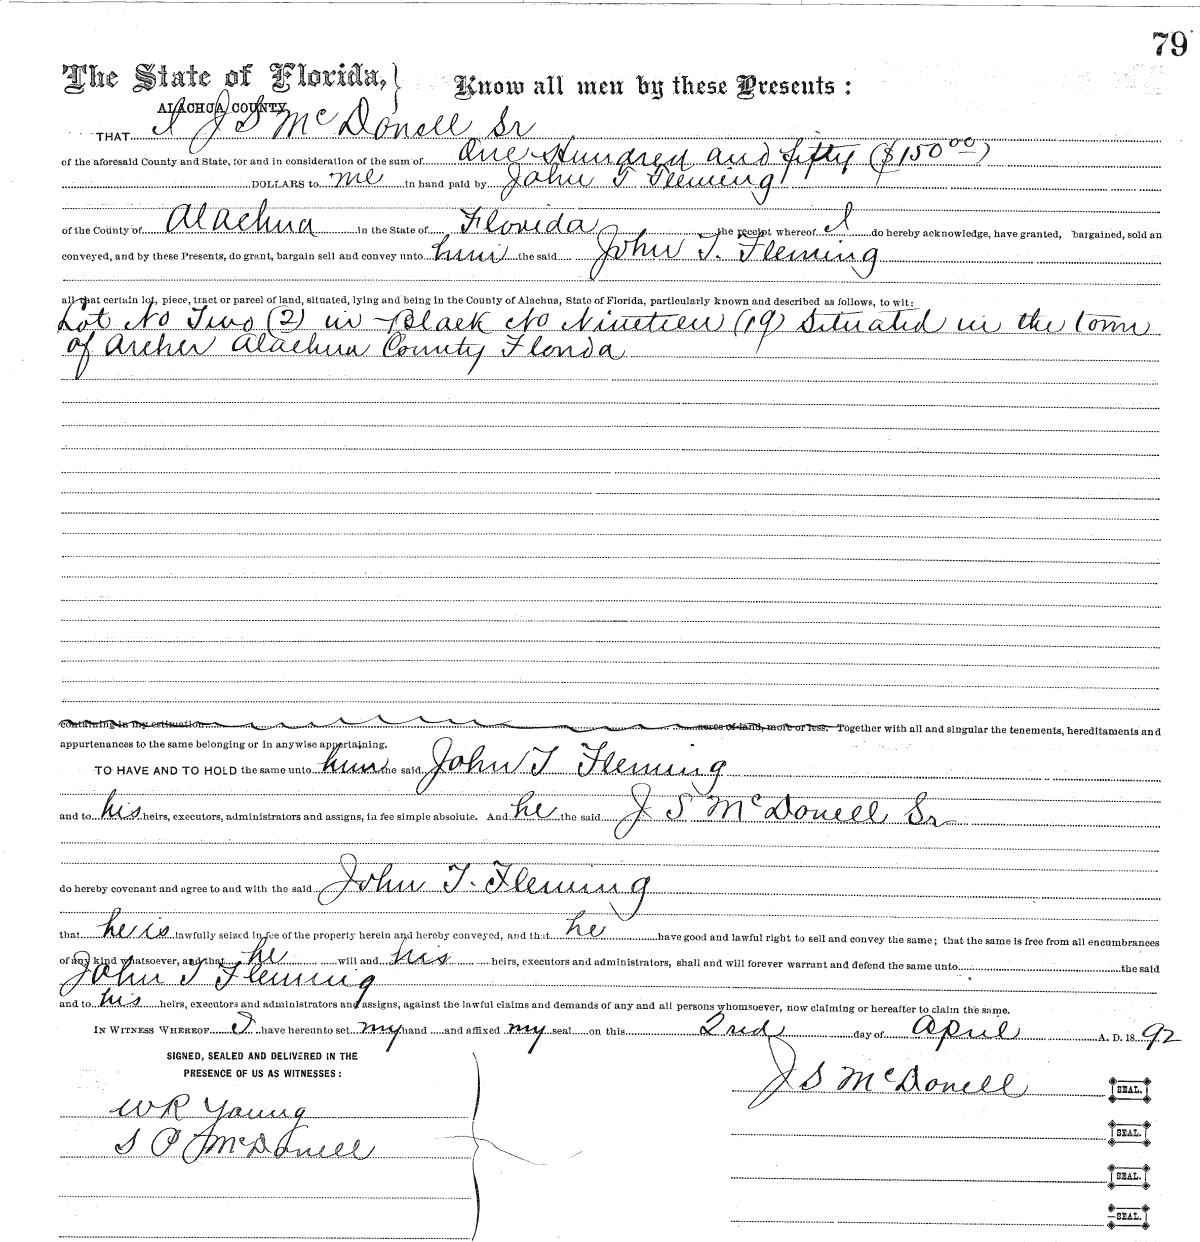 79
The State of Florida,
ALACHUA COUNTY
Know all men by these Presents :
THAT I J S McDonell Sr
of the aforesaid County and State, for and in consideration of the sum of One Hundred and fifty ($150 00)
DOLLARS to me in hand paid by John T Fleming
of the County of Alachua in the State of Florida the receipt whereof I do hereby acknowledge, have granted, bargained, sold an
conveyed, and by these Presents, do grant, bargain sell and convey unto him the said John T. Fleming
all that certain lot, piece, tract or parcel of land, situated, lying and being in the County of Alachua, State of Florida, particularly known and described as follows, to wit:
Lot No Two (2) in Block No Nineteen (19) Situated in the town
of Archer Alachua County Florida
containing in my estimation acres of land, more or less. Together with all and singular the tenements, hereditaments and
appurtenances to the same belonging or in anywise appertaining.
TO HAVE AND TO HOLD the same unto him the said John T Fleming
and to his heirs, executors, administrators and assigns, in fee simple absolute. And he the said J S McDonell Sr
do hereby covenant and agree to and with the said John T. Fleming
that he is lawfully seized in fee of the property herein and hereby conveyed, and that he have good and lawful right to sell and convey the same; that the same is free from all encumbrances
of any kind whatsoever, and that he will and his heirs, executors and administrators, shall and will forever warrant and defend the same unto the said
John T Fleming
and to his heirs, executors and administrators and assigns, against the lawful claims and demands of any and all persons whomsoever, now claiming or hereafter to claim the same.
IN WITNESS WHEREOF I have hereunto set my hand and affixed my seal on this 2nd day of April A. D. 1892
SIGNED, SEALED AND DELIVERED IN THE
PRESENCE OF US AS WITNESSES :
W R Young
S P McDonell
J S McDonell SEAL.
SEAL.
SEAL.
SEAL.